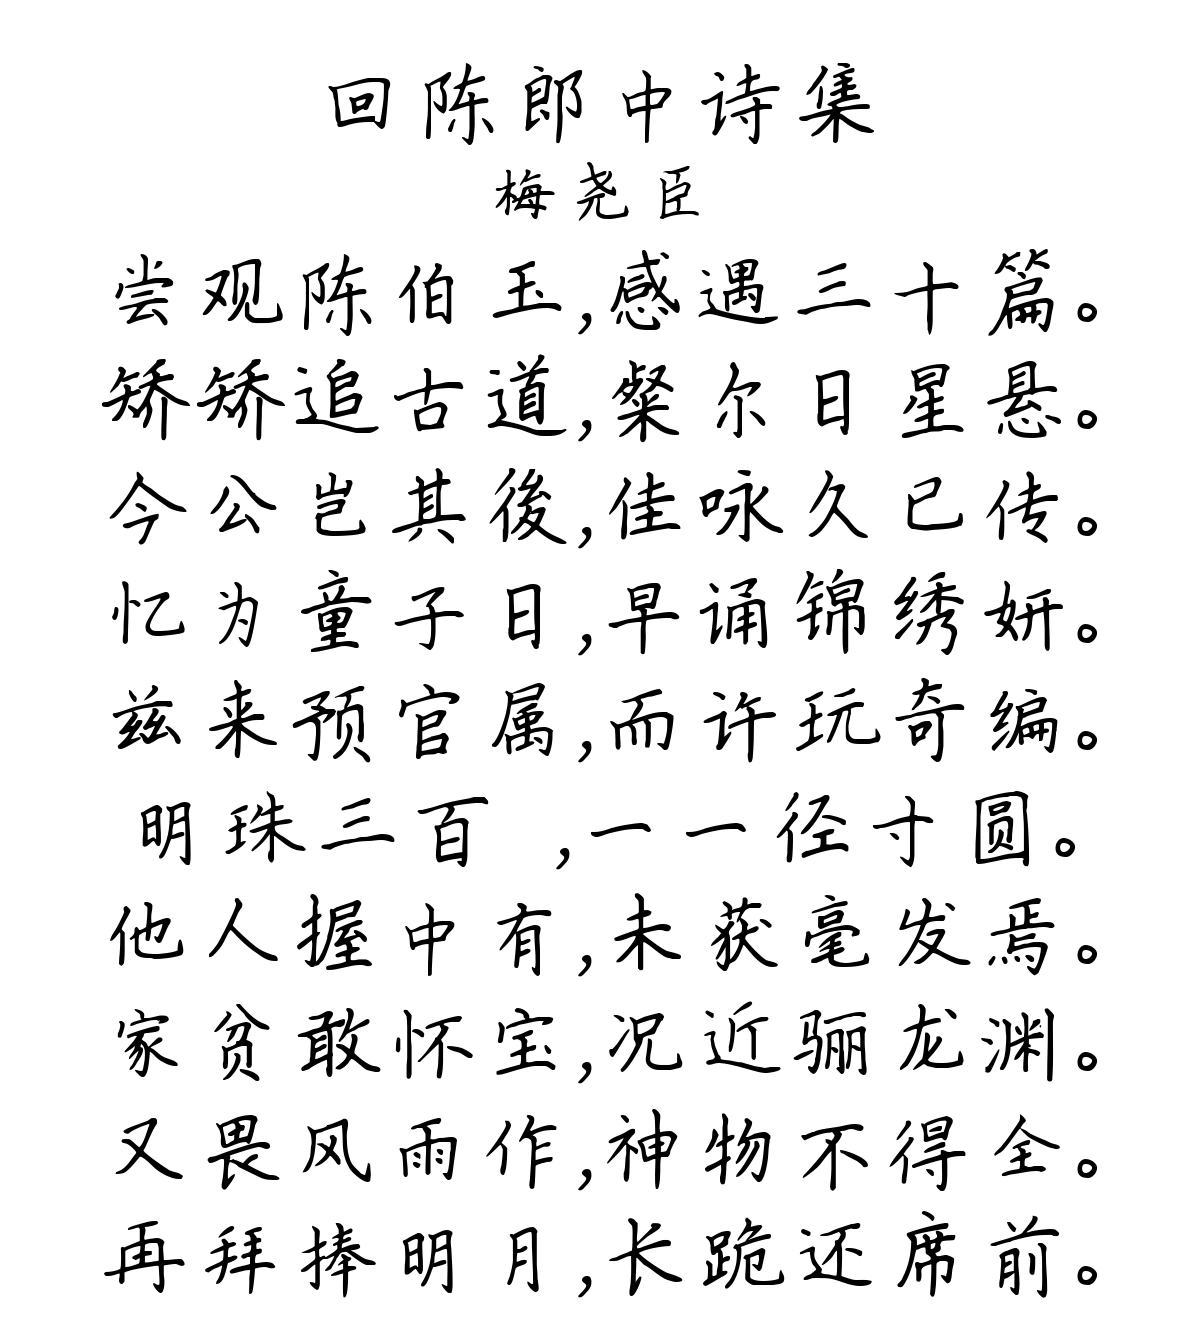 回陈郎中诗集
梅尧臣
尝观陈伯玉,感遇三十篇。
矫矫追古道,粲尔日星悬。
今公岂其後,佳咏久已传。
忆为童子日,早诵锦绣妍。
兹来预官属,而许玩奇编。
明珠三百 ,一一径寸圆。
他人握中有,未获毫发焉。
家贫敢怀宝,况近骊龙渊。
又畏风雨作,神物不得全。
再拜捧明月,长跪还席前。